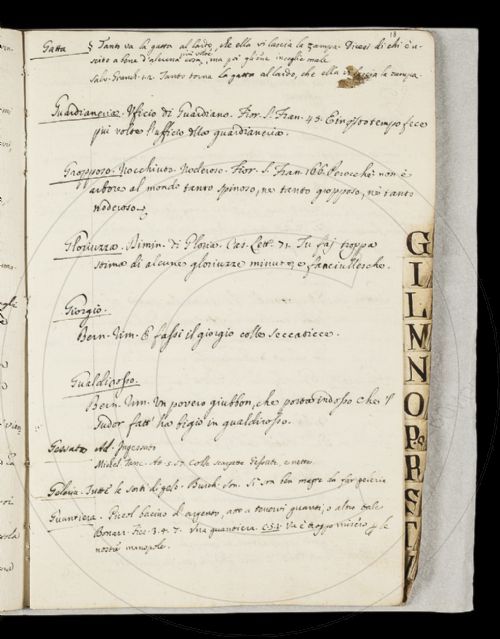 18
Gatta § Tanto va la gatta al lardo, che ella vi lascia la zampa. Dicesi di chi è u-
scito a bene d'alcuna cosa, ma poi gliene incoglie male
più volte
Salv. Granch. 1.2. Tanto torna la gatta al lardo, che ella vi lascia la zampa.
Guardianeria. Uficio di Guardiano. Fior. S. Fran. 45. E in questo tempo fece
più volte l'ufficio della guardianeria.
Gropposo. Nocchiuto. Noderoso. Fior. S. Fran. 166. Perocchè non è
arbore al mondo tanto spinoso, nè tanto gropposo, nè tanto
noderoso.
Gloriuzza. Dimin. di Gloria. Cas. Lett. 71. Tu fai troppa
stima di alcune gloriuzze minute e fanciullesche.
Giorgio.
Bern. rim. E fassi il giorgio colle seccaticce.
Gualdirosso.
Bern. rim. Un povero giubbon, che porta indosso che 'l
sudor fatt' ha bigio in gualdirosso.
Add. Ingessato
colle scarpette
Geleria. Tutte le sorti di gelo. Burch. Son.
Guantiera. Piccol bacino d'argento, atto a tenervi guanti, o altro tale
Bonarr. Fier. 3. 4. 7. Una guantiera
nostre manopole.
G
I
L
M
N
O
P.Q
R
S
T